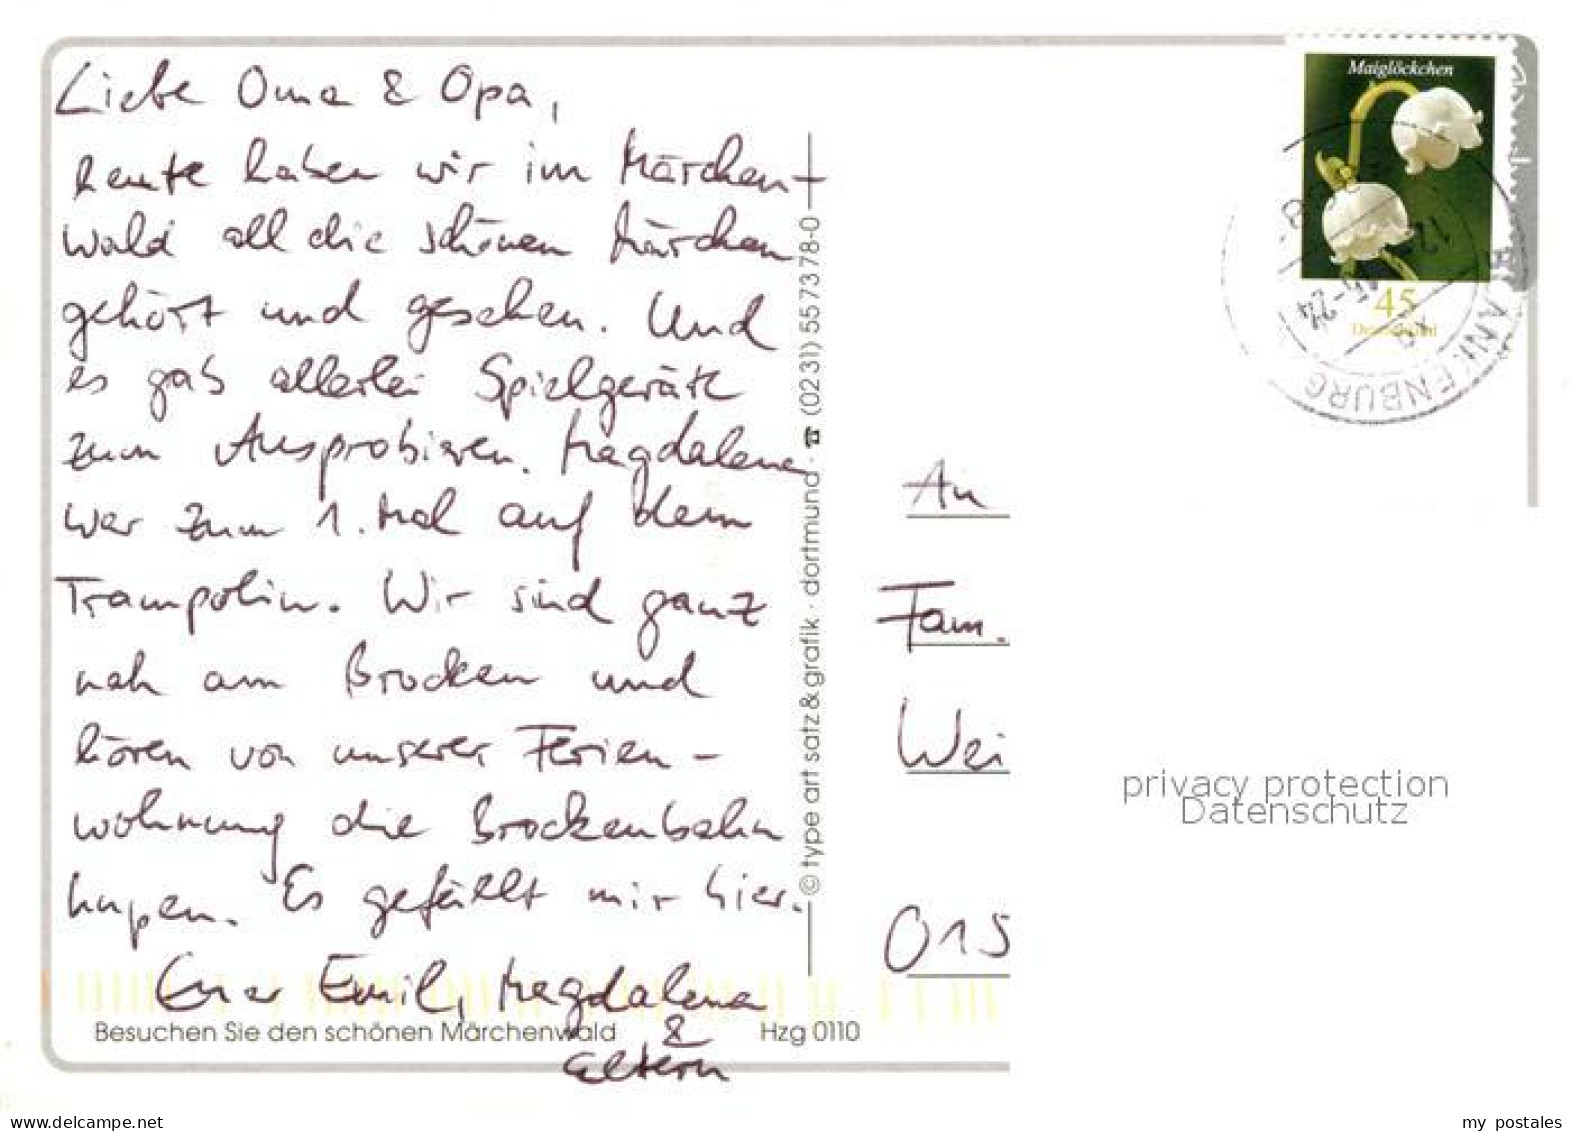 Liebe Oma & Opa,
heute haben wir im Märchen-
wald all die schönen Märchen
gehört und gesehen. Und
es gab allerlei Spielgeräte
zum Ausprobieren. Magdalena
war zum 1. Mal auf dem
Trampolin. Wir sind ganz
nah am Brocken und
hören von unserer Ferien-
wohnung die Brockenbahn
hupen. Es gefällt mir hier.
Euer Emil, Magdalena
&
Eltern
Besuchen Sie den schönen Märchenwald
Hzg 0110
© type art satz & grafik · dortmund · ☎ (0231) 557378-0
Maiglöckchen
45
Deutschland
BLANKENBURG
An
Fam.
Wei
015
privacy protection
Datenschutz
www.delcampe.net
my_postales